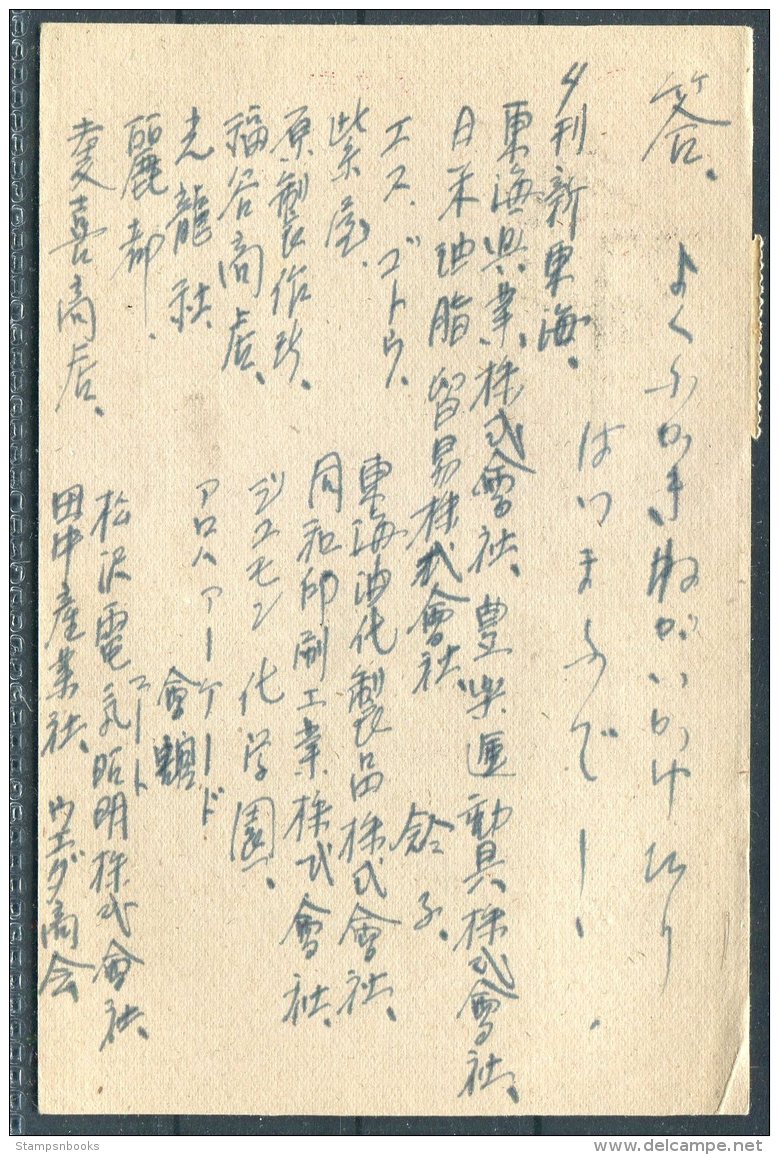 答、
よくふかきねがいかけひり
はりまふでー、
夕刊新東海、
東海興業株式會社、豊楽運動具株式會社、
日米油脂貿易株式會社、
エス、ゴトウ、
紫屋、
原製作所、
福谷商店、
光龍社、
麗都、
喜商店、
子、
東海油化製品株式會社、
同和印刷工業株式會社、
ジユモン化学園、
アロハアーケード
會館
コート
松沢電気照明株式會社、
田中産業社、ウエダ商会
Stampsnbooks